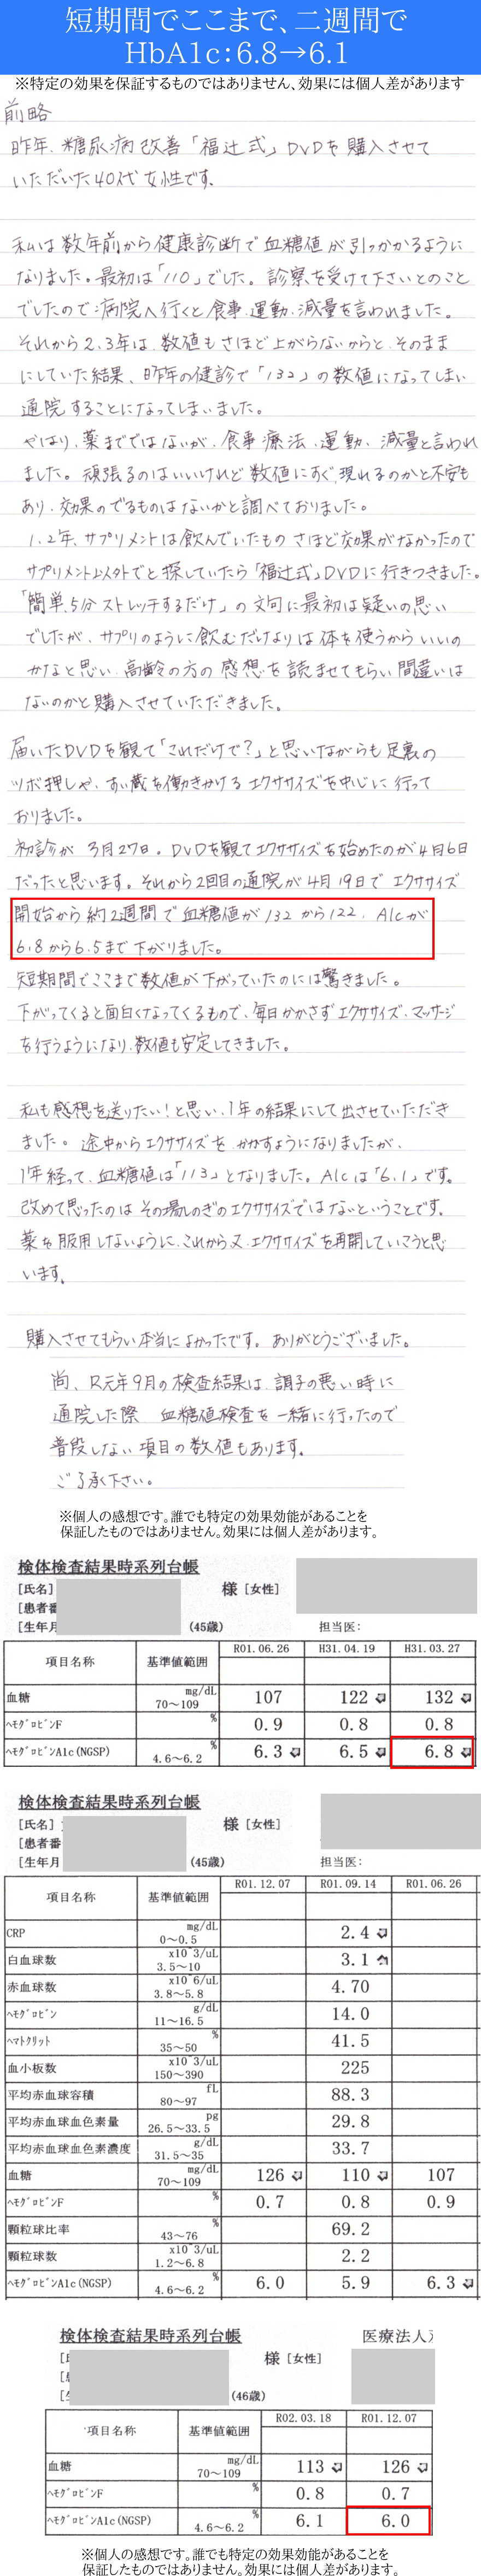 短期間でここまで、二週間で
HbA1c:6.8→6.1
※特定の効果を保証するものではありません、効果には個人差があります
前略
昨年、糖尿病改善「福辻式」DVDを購入させて
いただいた40代女性です。
私は数年前から健康診断で血糖値が引っかかるように
なりました。最初は「110」でした。診察を受けて下さいとのこと
でしたので病院へ行くと食事、運動、減量を言われました。
それから2、3年は、数値もさほど上がらないからと、そのまま
にしていた結果、昨年の健診で「132」の数値になってしまい
通院することになってしまいました。
やはり、薬までではないが、食事療法、運動、減量と言われ
ました。頑張るのはいいけれど数値にすぐ、現れるのかと不安も
あり、効果のでるものはないかと調べておりました。
1、2年、サプリメントは飲んでいたもの さほど効果がなかったので
サプリメント以外でと探していたら「福辻式」DVDに行きつきました。
「簡単、5分ストレッチするだけ」の文句に最初は疑いの思い
でしたが、サプリのように飲むだけよりは体を使うからいいの
かなと思い、高齢の方の感想を読ませてもらい間違いは
ないのかと購入させていただきました。
届いたDVDを観て「これだけで?」と思いながらも足裏の
ツボ押しや、すい蔵を働きかけるエクササイズを中心に行って
おりました。
初診が3月27日。DVDを観てエクササイズを始めたのが4月6日
だったと思います。それから2回目の通院が4月19日でエクササイズ
開始から約2週間で血糖値が132から122、A1cが
6.8から6.5まで下がりました。
短期間でここまで数値が下がっていたのには驚きました。
下がってくると面白くなってくるもので、毎日かかさずエクササイズ、マッサージ
を行うようになり、数値も安定してきました。
私も感想を送りたい!と思い、1年の結果にして出させていただき
ました。途中からエクササイズを、かかすようになりましたが、
1年経って、血糖値は「113」となりました。A1cは「6.1」です。
改めて思ったのはその場しのぎのエクササイズではないということです。
薬を服用しないように、これから又、エクササイズを再開していこうと思
います。
購入させてもらい本当によかったです。ありがとうございました。
尚、R元年9月の検査結果は、調子の悪い時に
通院した際 血糖値検査を一緒に行ったので
普段しない項目の数値もあります。
ご了承下さい。
※個人の感想です。誰でも特定の効果効能があることを
保証したものではありません。効果には個人差があります。
検体検査結果時系列台帳
[氏名] 様 [女性]
[患者番
[生年月 (45歳) 担当医:
項目名称 基準値範囲 R01.06.26 H31.04.19 H31.03.27
血糖 mg/dL 70～109 107 122 132
ﾍﾓｸﾞﾛﾋﾞﾝF % 0.9 0.8 0.8
ﾍﾓｸﾞﾛﾋﾞﾝA1c(NGSP) % 4.6～6.2 6.3 6.5 6.8
検体検査結果時系列台帳
[氏名] 様 [女性]
[患者番
[生年月 (45歳) 担当医:
項目名称 基準値範囲 R01.12.07 R01.09.14 R01.06.26
CRP mg/dL 0～0.5 2.4
白血球数 x10^3/uL 3.5～10 3.1
赤血球数 x10^6/uL 3.8～5.8 4.70
ﾍﾓｸﾞﾛﾋﾞﾝ g/dL 11～16.5 14.0
ﾍﾏﾄｸﾘｯﾄ % 35～50 41.5
血小板数 x10^3/uL 150～390 225
平均赤血球容積 fL 80～97 88.3
平均赤血球血色素量 pg 26.5～33.5 29.8
平均赤血球血色素濃度 g/dL 31.5～35 33.7
血糖 mg/dL 70～109 126 110 107
ﾍﾓｸﾞﾛﾋﾞﾝF % 0.7 0.8 0.9
顆粒球比率 % 43～76 69.2
顆粒球数 x10^3/uL 1.2～6.8 2.2
ﾍﾓｸﾞﾛﾋﾞﾝA1c(NGSP) % 4.6～6.2 6.0 5.9 6.3
検体検査結果時系列台帳 医療法人
様 [女性]
(46歳)
項目名称 基準値範囲 R02.03.18 R01.12.07
血糖 mg/dL 70～109 113 126
ﾍﾓｸﾞﾛﾋﾞﾝF % 0.8 0.7
ﾍﾓｸﾞﾛﾋﾞﾝA1c(NGSP) % 4.6～6.2 6.1 6.0
※個人の感想です。誰でも特定の効果効能があることを
保証したものではありません。効果には個人差があります。